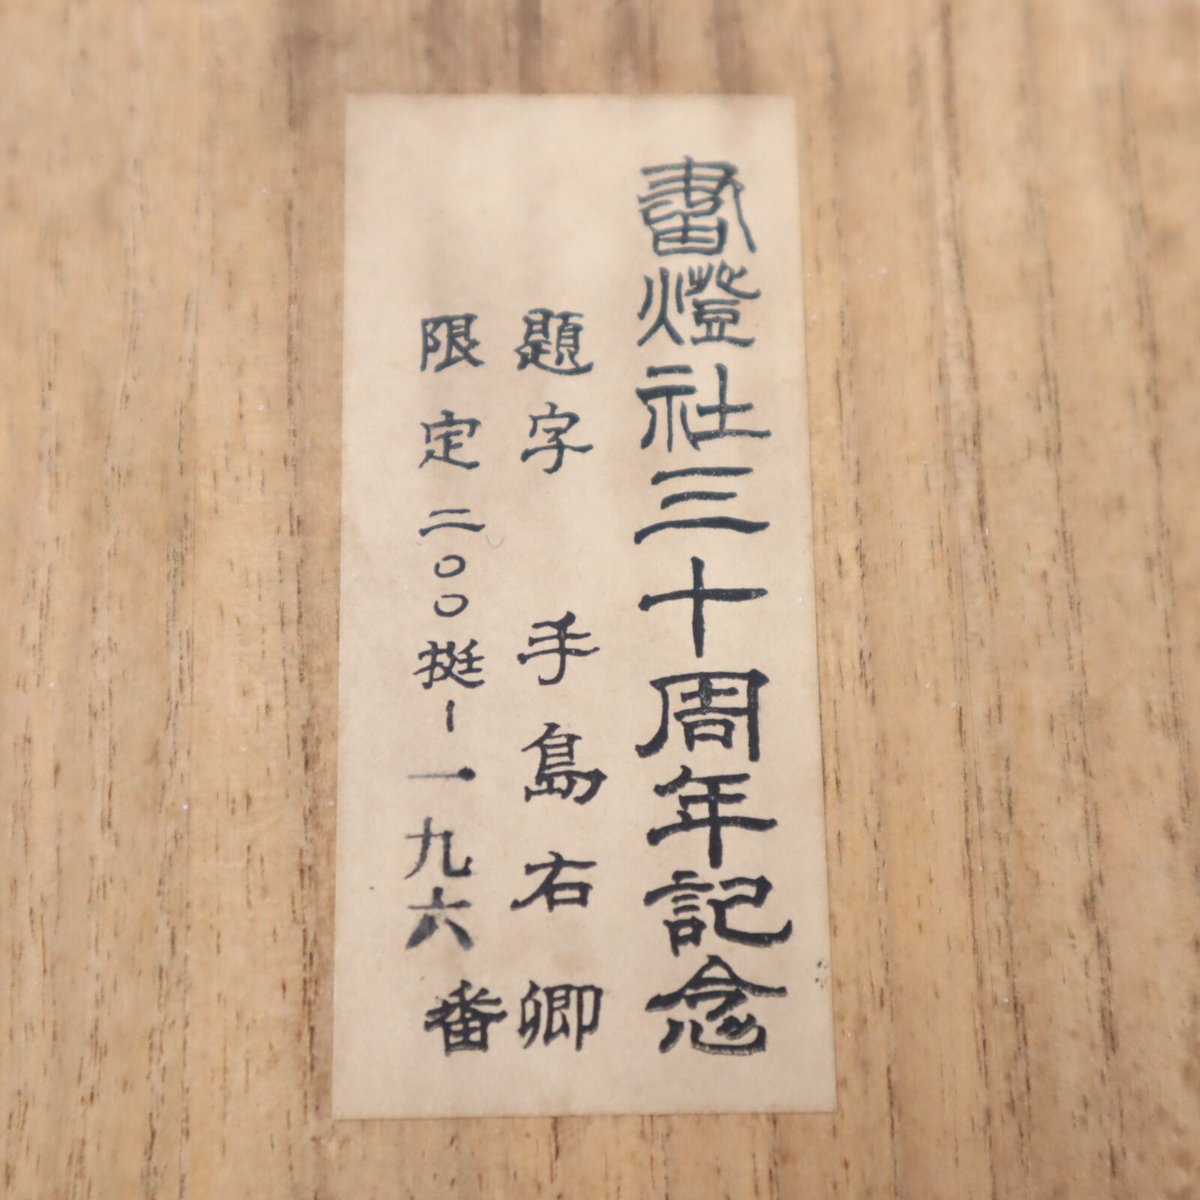 書燈社三十周年記念
題字 手島右卿
限定二〇〇挺-一九六番